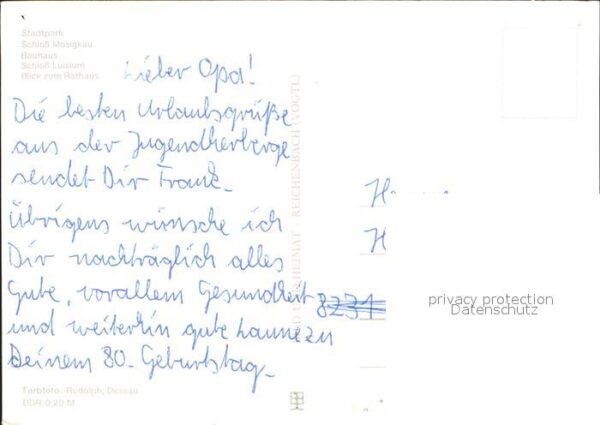 Stadtpark
Schloß Mosigkau
Bauhaus
Schloß Luisium
Blick zum Rathaus
Lieber Opa!
Die besten Urlaubsgrüße
aus der Jugendherberge
sendet Dir Frank.
Übrigens wünsche ich
Dir nachträglich alles
Gute, vorallem Gesundheit
und weiterhin gute Laune zu
Deinem 80. Geburtstag.
Farbfoto: Rudolph, Dessau
DDR 0,20 M
BILD UND HEIMAT REICHENBACH (VOGTL)
H
H
8231
privacy protection
Datenschutz